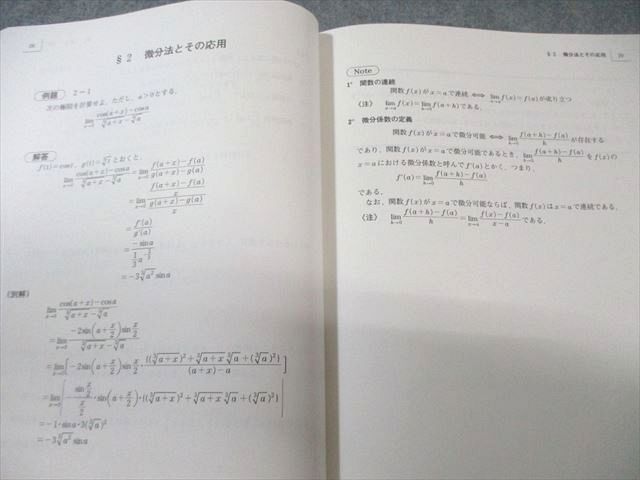 §2 微分法とその応用
例題 2−1
次の極限を計算せよ。ただし, a>0とする。
lim_{x→0} \frac{cos(a+x)−cosa}{∛(a+x)−∛a}
解答
f(x)=cosx, g(x)=∛x とおくと,
lim_{x→0} \frac{cos(a+x)−cosa}{∛(a+x)−∛a}=lim_{x→0} \frac{f(a+x)−f(a)}{g(a+x)−g(a)}
=lim_{x→0} \frac{\frac{f(a+x)−f(a)}{x}}{\frac{g(a+x)−g(a)}{x}}
=\frac{f′(a)}{g′(a)}
=\frac{−sina}{\frac{1}{3}a^{−\frac{2}{3}}}
=−3∛(a²) sina
(別解)
lim_{x→0} \frac{cos(a+x)−cosa}{∛(a+x)−∛a}
=lim_{x→0} \frac{−2sin(a+\frac{x}{2})sin\frac{x}{2}}{∛(a+x)−∛a}
=lim_{x→0}[−2sin(a+\frac{x}{2})sin\frac{x}{2}·\frac{{(∛(a+x))²+∛(a+x) ∛a+(∛a)²}}{(a+x)−a}]
=lim_{x→0}[−\frac{sin\frac{x}{2}}{\frac{x}{2}}·sin(a+\frac{x}{2})·{(∛(a+x))²+∛(a+x) ∛a+(∛a)²}]
=−1·sina·3(∛a)²
=−3∛(a²) sina
§2 微分法とその応用
Note
1° 関数の連続
関数f(x)がx=aで連続 ⟺ lim_{x→a} f(x)=f(a)が成り立つ
(注) lim_{x→a} f(x)=lim_{h→0} f(a+h)である。
2° 微分係数の定義
関数f(x)がx=aで微分可能 ⟺ lim_{h→0} \frac{f(a+h)−f(a)}{h}が存在する
であり, 関数f(x)がx=aで微分可能であるとき, lim_{h→0} \frac{f(a+h)−f(a)}{h}をf(x)の
x=aにおける微分係数と呼んでf′(a)とかく。つまり,
f′(a)=lim_{h→0} \frac{f(a+h)−f(a)}{h}
である。
なお, 関数f(x)がx=aで微分可能ならば, 関数f(x)はx=aで連続である。
(注) lim_{h→0} \frac{f(a+h)−f(a)}{h}=lim_{x→a} \frac{f(x)−f(a)}{x−a}である。